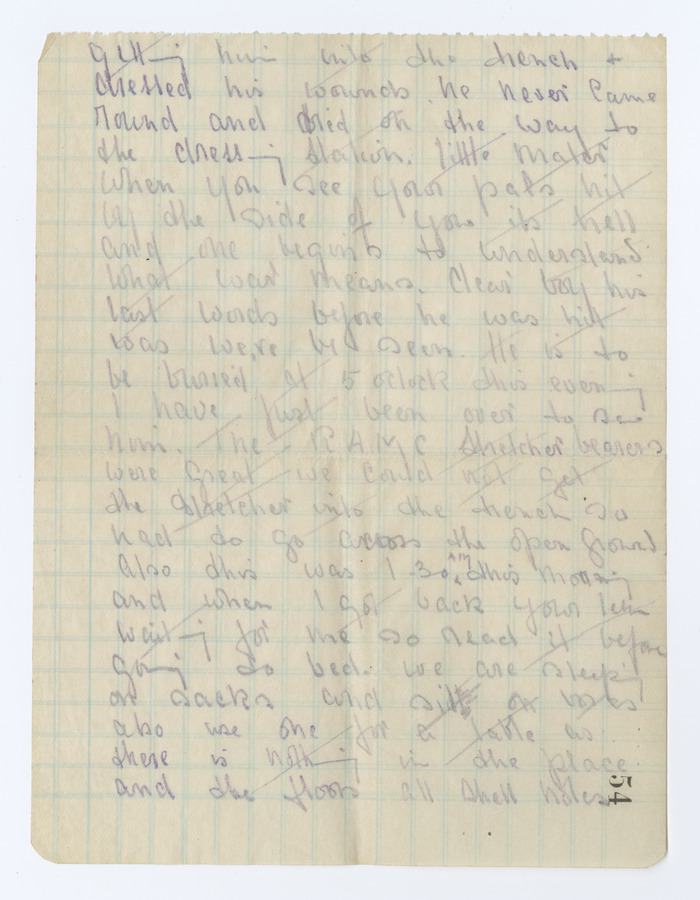 getting him into the trench &
dressed his wounds. he never came
round and died on the way to
the dressing station. little mater
when you see your pals hit
by the side of you its hell
and one begins to understand
what war means. Clear boy his
last words before he was hit
was we,re be seen. He is to
be buried at 5 oclock this evening
I have just been over to see
him. The R.A.M.C stretcher bearers
were great we could not get
the stretcher into the trench so
had to go across the open ground.
also this was 1.30 am this morning
and when I got back your letter
waiting for me so read it before
going to bed. we are sleeping
on sacks and sit on boxes
also use one for a table as
there is nothing in the place
and the floors all shell holes
54